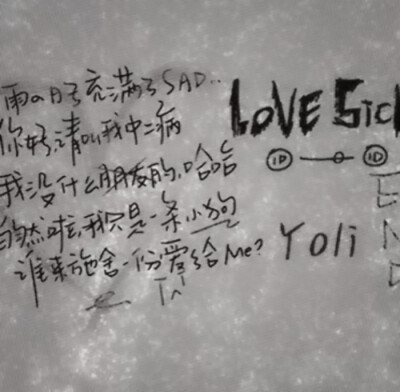 雨の日子充满了SAD..
你好,请叫我中二病
我没什么朋友的,哈哈
自然啦,我只是一条小狗
谁来施舍一份爱给Me?
LOVE SICK
ID ID
Yoli
E
N
D